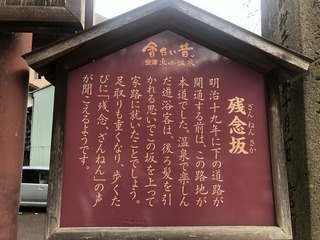 會たい昔
会津東山温泉
ざんねんざか
残念坂
明治十九年に下の道路が
開通する前は、この路地が
本道でした。温泉で楽しん
だ遊浴客は、後ろ髪を引
かれる思いでこの坂を上って
家路に就いたことでしょう。
足取りも重くなり、歩くた
びに「残念、ざんねん」の声
が聞こえるようです。